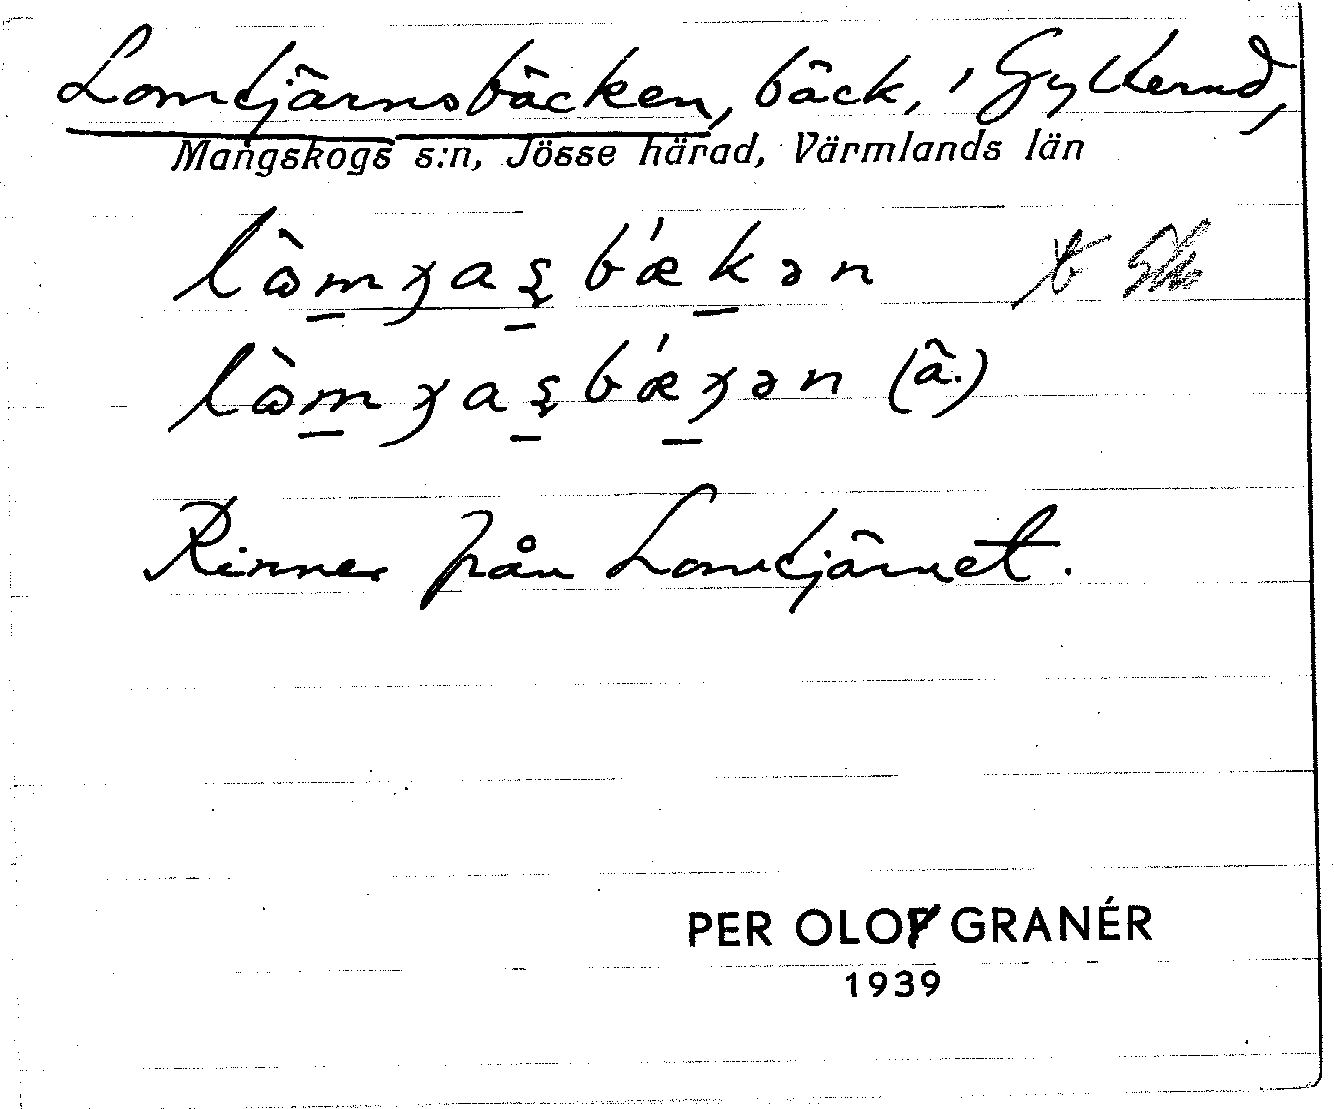 Lomtjärnsbäcken, bäck, i Gyllerud,
Mangskogs s:n, Jösse härad, Värmlands län
(ä.)
Rinner från Lomtjärnet.
PER OLOF GRANÉR
1939